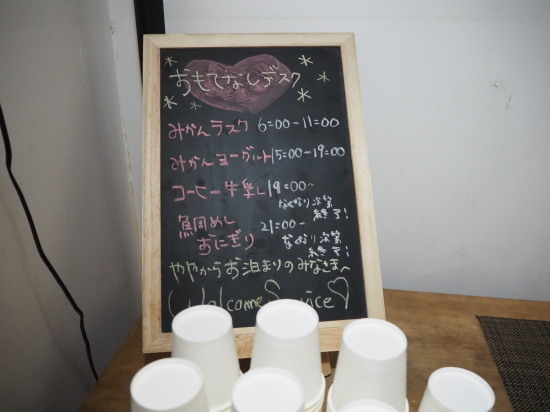 おもてなしデスク
みかんラスク 6:00-11:00
みかんヨーグルト 15:00-19:00
コーヒー牛乳 19:00~
なくなり次第
終了!
鯛めし 21:00-
おにぎり なくなり次第
終了!
ややからお泊まりのみなさまへ
Welcome Service♡